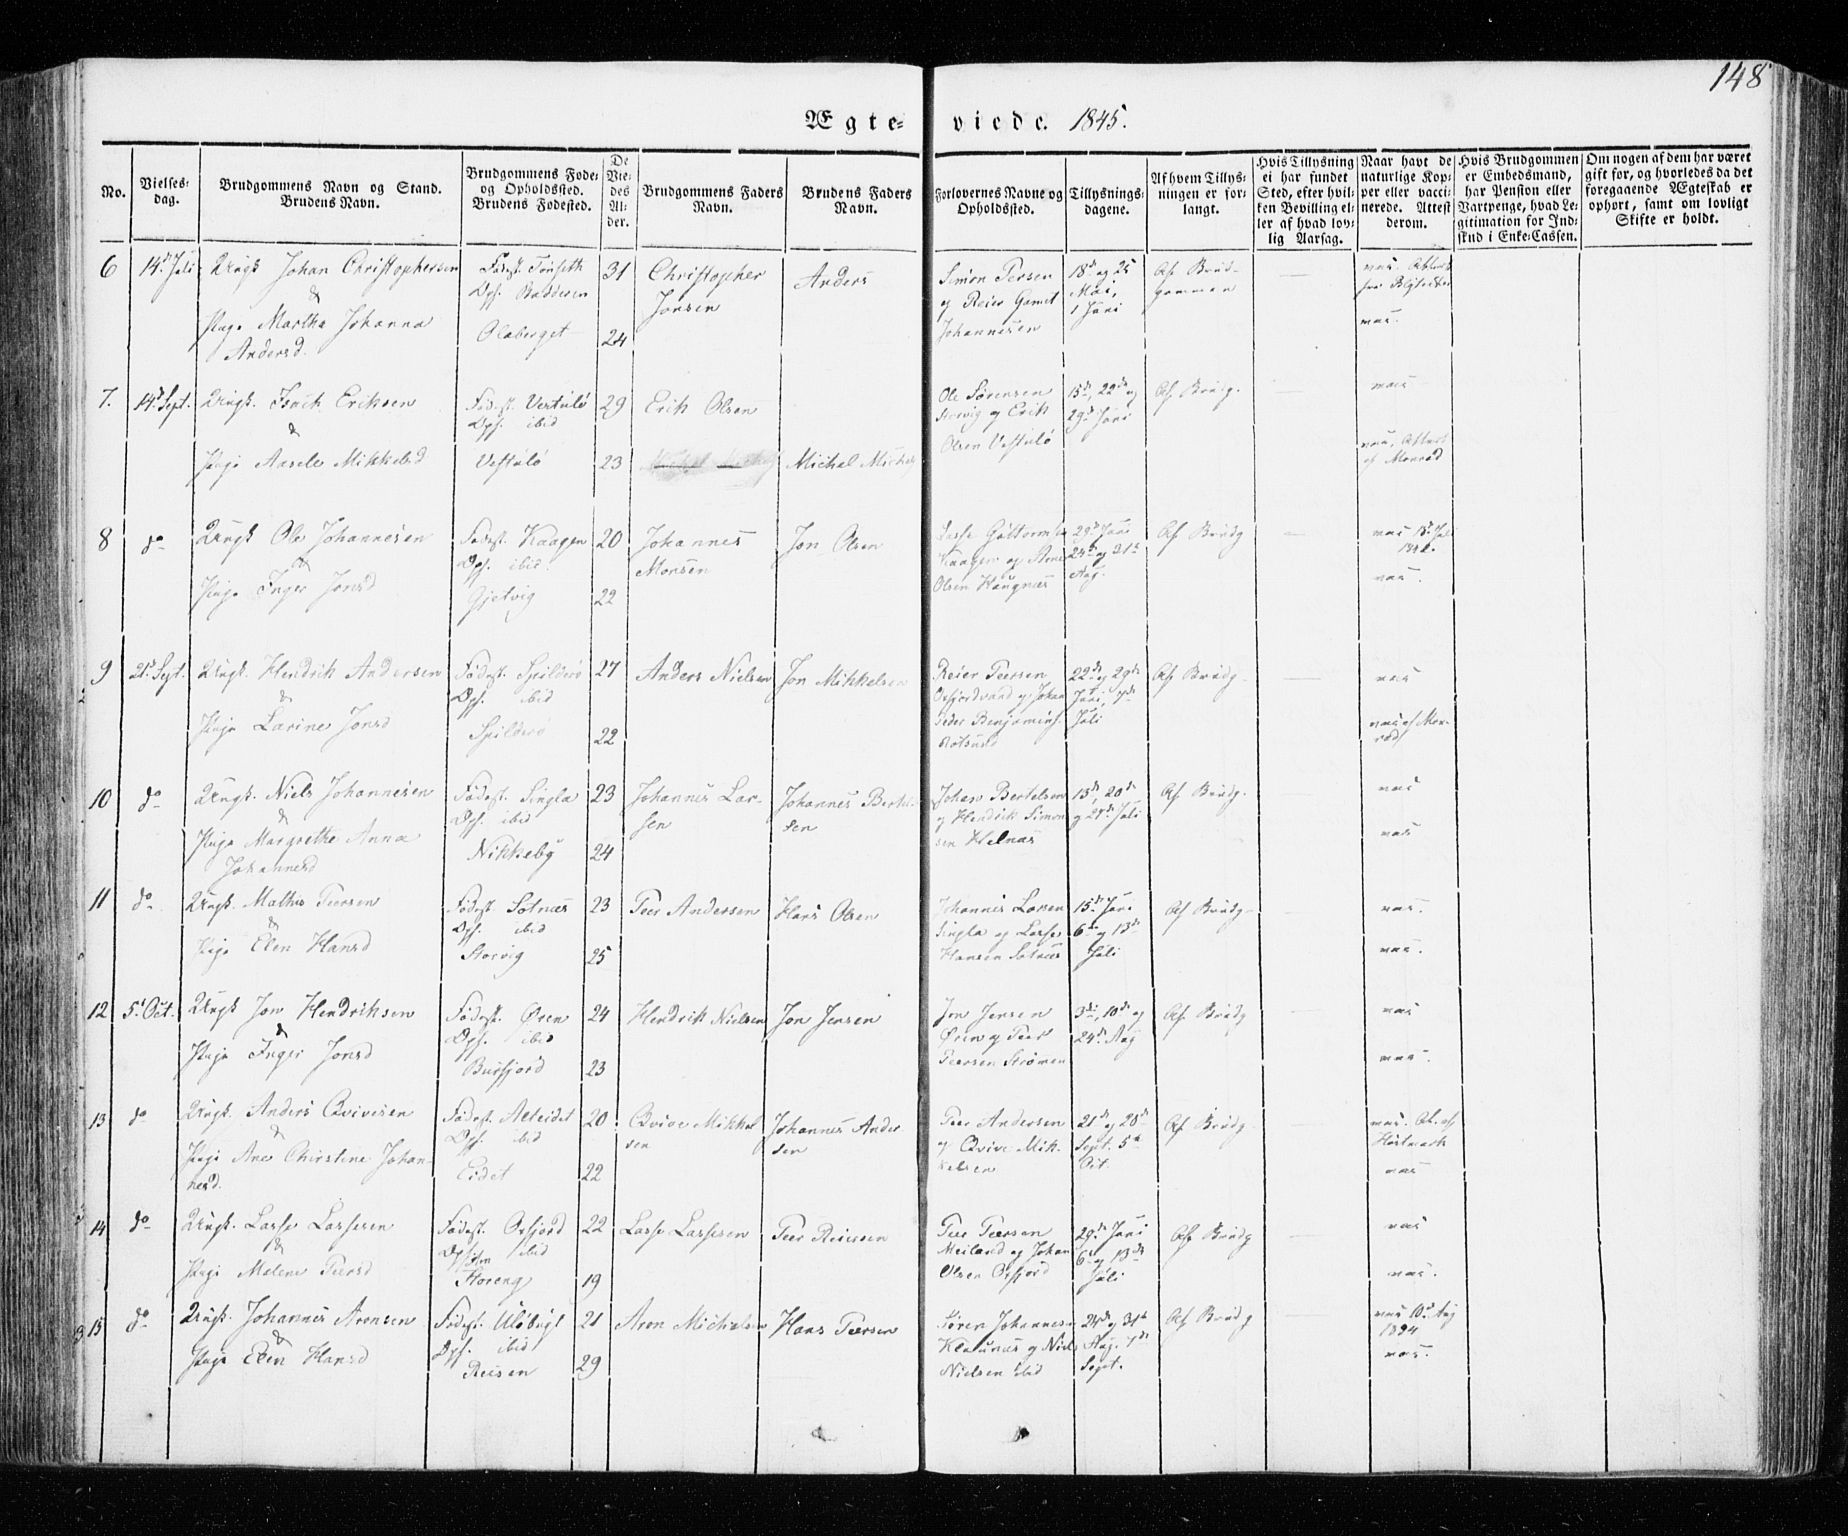 148
Ægte- viede. 1845.
No.
Vielses-
dag.
Brudgommens Navn og Stand.
Brudens Navn.
Brudgommens Føde-
og Opholdssted.
Brudens Fødested.
De
Vie-
des
Al-
der.
Brudgommens Faders
Navn.
Brudens Faders
Navn.
Forlovernes Navne og
Opholdssted.
Tillysnings-
dagene.
Af hvem Tillys-
ningen er for-
langt.
Hvis Tillysning
ei har fundet
Sted, efter hvil-
ken Bevilling el-
ler af hvad lov-
lig Aarsag.
Naar havt de
naturlige Kop-
per eller vacci-
nerede. Attest
derom.
Hvis Brudgommen
er Embedsmand,
har Pension eller
Vartpenge, hvad Le-
gitimation for Ind-
skud i Enke-Cassen.
Om nogen af dem har været
gift før, og hvorledes da det
foregaaende Ægteskab er
ophørt, samt om lovligt
Skifte er holdt.
6 14de Juli Ungk. Johan Christophersen
&
Pige Martha Johanna
Andersd.
Fødest. Torseth
Ops.
Olaberget
31
24
Christopher
Jonsen
Anders
Simon Persen
og Reier Gamst
Johannesen
18de og 25
Mai,
1 Juni
Af Brud-
gommen
vac. Attest
vac.
7. 14de Sept. Ungk. Isach Eriksen
&
Pige Aasele Mikkelsd
Fødest. Vertulø
Ops. ibid
Vestulø
29
23
Erik Olsen
Michel Michels
Ole Sørensen
Storvig og Erik
Olsen Vestulø
15de, 22de og
29de Juni
Af Brudg.
vac
vac, Attest
af Monrad
8 do Ungk Ole Johannesen
&
Pige Inger Jonsd
Fødest. Kaagen
Ops. ibid.
Gjetvig
20
22
Johannes
Monsen
Jon Olsen
Lasse Guttormsen
Kaagen og Arne
Olsen Haugnæs
29de Juni
24de og 31te
Aug.
Af Brudg
vac 13de Juli
vac.
9 21de Sept. Ungk. Hendrik Andersen
&
Pige Larine Jonsd
Fødest. Spilderø
Ops. ibid
Spilderø
27
22
Anders Nielsen
Jon Mikkelsen
Reier Peersen
Oxfjordvand og Johan
Peder Benjamins.
Rotsund
22de og 29de
Juni, 7de
Juli
Af Brudg.
vac
vac af Mon-
rad
10 do Ungk. Niels Johannesen
&
Pige Margrethe Anna
Johannesd
Fødest. Singla
Ops. ibid
Nikkeby
23
24
Johannes Lar-
sen
Johannes Bertel-
sen
Johan Bertelsen
og Hendrik Simon
sen Helnæs
13de, 20de
og 27de Juli
Af Brudg.
vac
vac
11 do Ungk. Mathis Peersen
&
Pige Elen Hansd
Fødest. Sotnæs
Ops. ibid
Storvig
23
25
Peer Andersen
Hans Olsen
Johannes Larsen
Singla og Lasse
Hansen Sotnæs
15de Juni
6te og 13de
Juli
Af Brudg
vac.
vac.
12 5te Oct. Ungk Jon Hendriksen
&
Pige Inger Jonsd
Fødest. Øren
Ops. ibid
Burfjord
24
23
Hendrik Nielsen
Jon Jensen
Jon Jensen
Øren og Peer
Peersen Strømen
3die, 10de og
24de Aug
Af Brudg
vac
vac.
13 do Ungk. Anders Qvivesen
&
Pige Ane Chirstine Johan-
nesd.
Fødest. Alteidet
Ops. ibid
Eidet
20
22
Qvive Mikkel
sen
Johannes Ander
sen
Peer Andersen
og Qvive Mik-
kelsen
21de og 28de
Sept. 5te
Oct.
Af Brudg
vac. At. af
Høstmark
vac
14 do Ungk. Lasse Lassesen
&
Pige Malene Peersd
Fødest. Oxfjord
Ops. ibid
Storeng
22
19
Lasse Lassesen
Peer Reiersen
Peer Peersen
Meiland og Johan
Olsen Oxfjord
29de Juni
6te og 13de
Juli
Af Brudg
vac
vac.
15 do Ungk. Johannes Aronsen
&
Pige Elen Hansd
Fødest. Uløbugt
Ops. ibid
Reisen
21
29
Aron Michelsen
Hans Peersen
Søren Johannesen
og Niels
Nielsen ibid
24de og 31te
Aug. 7de
Sept.
Af Brudg
vac 10de Aug
1834
vac.